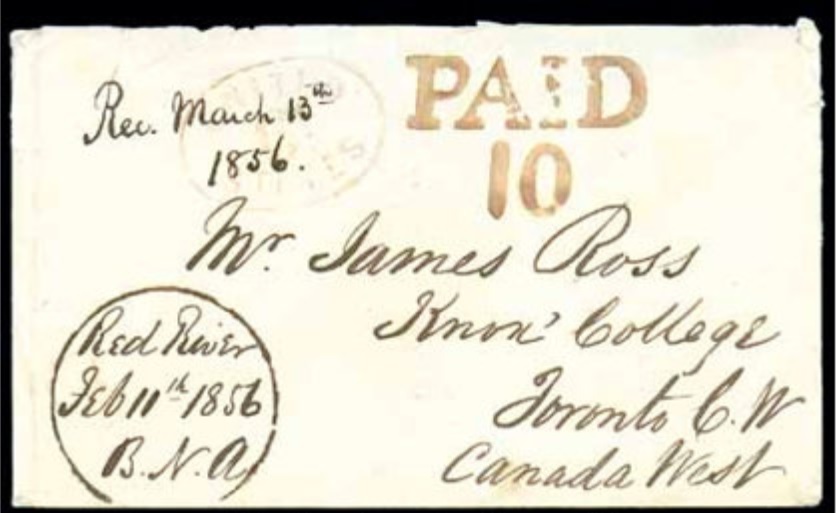 Rec. March 13th
1856.
PAID
10
Mr. James Ross
Knox' College
Toronto C.W
Canada West
Red River
Feb 11th 1856
B.N.A